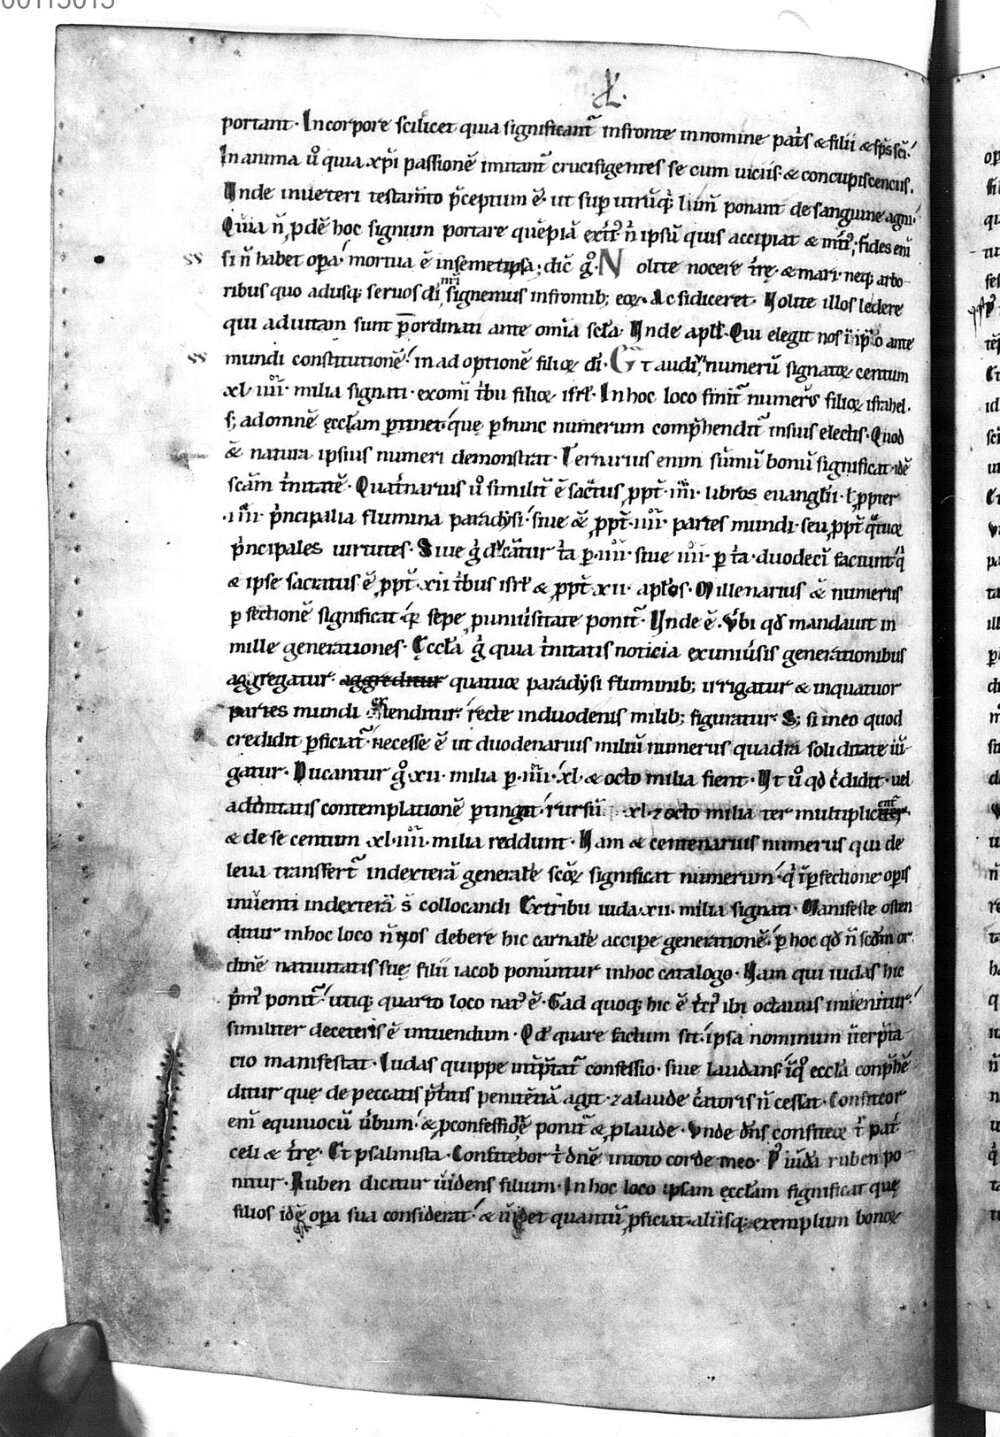 00115015
portant. In corpore scilicet quia significant̃ in fronte in nomine pat̃s & filii & sp̃s sc̃i.
In anima ů quia xp̃i passionẽ imitant̃ crucifigentes se cum uiciis & concupiscenciis.
Unde in ueteri testam̃to p̃ceptum ẽ ut sup utrũq; lim̃ ponant de sanguine agni.
Quia ñ p̃dẽ hoc signum portare ñ ipsũ quis accipiat & fides eni
ss si ñ habet op̃a mortua ẽ in semetipsa; dic̃ g̊. Nolite nocere t̃rę & mari neq; arbo
ribus quo adusq; seruos di n̄ri signemus in frontib; eoꝝ. Ac si diceret. Nolite illos ledere
qui ad uitam sunt p̄ordinati ante omĩa sc̃la. Unde apl̃s. Qui elegit nos ĩ ip̃o ante
ss mundi constitutionẽ in adoptionẽ filioꝝ di. Et audiui numerũ signatoꝝ centum
xl iiii milia signati ex om̃i t̃bu filioꝝ isrl̃. In hoc loco finit̃ numerus filioꝝ israhel.
s; ad omnẽ ęccl̃am p̱tinet quę p̱ hunc numerum comp̃hendit̃ in suis electis. Quod
& natura ipsius numeri demonstrat. Ternarius enim sũmũ bonũ significat idẽ
sc̃am t̃nitatẽ. Quat̃narius ů similit̃ ẽ sac̃tus p̱pt̃ iiii libros euanglii. ł p̱pter
iiii p̃ncipalia flumina paradysi siue & p̱pt̃ iiii partes mundi seu p̱pt̃ q̃tuoꝝ
p̃ncipales uirtutes. Siue g̊ ducãtur t̃a p̱ iiii siue iiii p̱ t̃a duodeci faciunt q̃
& ipse sacratus ẽ p̱pt̃ xii t̃bus isrl̃ & p̱pt̃ xii apl̃os. Millenarius & numerus
p̱fectionẽ significat q̃ sepe p̱ uniũsitate ponit̃. Unde ẽ. Verbi qd̃ mandauit in
mille generationes. Ęccl̃a g̊ quia t̃nitatis noticia ex uniũsis generationibus
aggregatur aggreditur quatuor paradysi fluminib; irrigatur & in quatuor
partes mundi extenditur recte in duodenis milib; figuratur. S; si in eo quod
credidit p̱ficiat necesse ẽ ut duodenarius miliũ numerus quadra soliditate iũ
gatur. Ducantur g̊ xii milia p̱ iiii xl & octo milia fient. Ut ů qd̃ c̃didit uel
ad t̃nitatis contemplationẽ p̱tingat rursũ xl & octo milia ter multiplicentur
& de se centum xl iiii milia reddunt. Nam & centenarius numerus qui de
leua transfert̃ in dexterã generalẽ significat numerum q̃ ĩ p̱fectione op̱is
inuenti in dexterã s̃ collocandi. Ex tribu iuda xii milia signati. Manifeste osten
ditur in hoc loco ñ nos debere hic carnalẽ accipe generationẽ p̱ hoc qd̃ ñ scd̃m or
dinẽ natiuitatis suę filii iacob ponuntur in hoc catalogo. Nam qui iudas hic
p̃m̊ ponit̃ utiq; quarto loco nat̃ ẽ. Gad quoq; hic ẽ t̃ti̊ ibi octauus inuenitur.
similiter de ceteris ẽ intuendum. Qd̃ quare factum sit ipsa nominum ĩterp̃ta
tio manifestat. Iudas quippe int̃p̃tat̃ confessio siue laudans ĩ q̊ eccl̃a conp̃hẽ
ditur quę de peccatis p̃t̃itis penitentiã agit & a laude c̃atoris ñ cessat. Confiteor
eni equiuocũ ũbum & p̱ confessiõe ponit̃ & p̱ laude. Unde dñs confiteoꝝ t̃ pat̃
celi & t̃rę. Et psalmista. Confitebor t̃ dñe in toto corde meo. P̊ iuda ruben po
nitur. Ruben dicitur uidens filium. In hoc loco ipsam ęccl̃am significat quę
filios idẽ op̃a sua considerat & uidet quantũ p̱ficiat aliisq; exemplum bonoꝝ